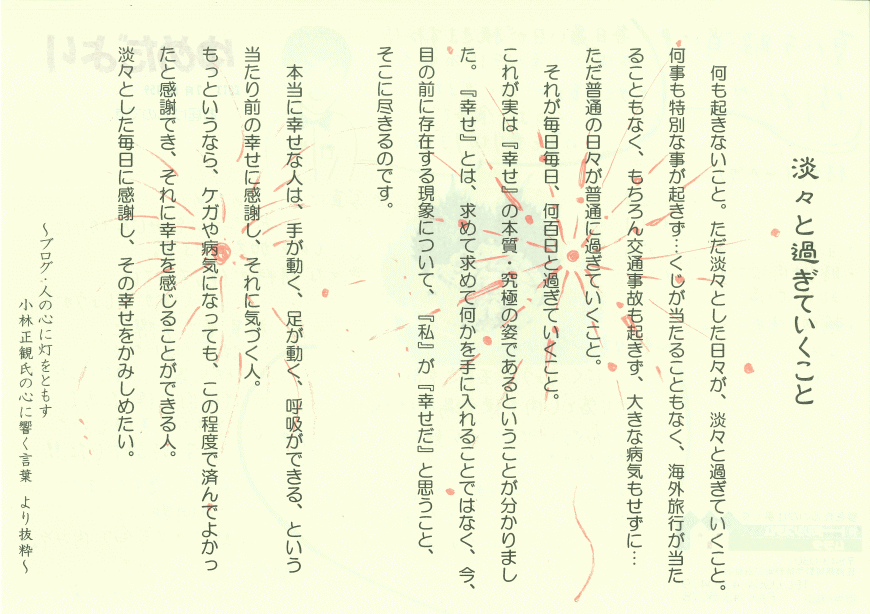 淡々と過ぎていくこと
何も起きないこと。ただ淡々とした日々が、淡々と過ぎていくこと。
何事も特別な事が起きず…くじが当たることもなく、海外旅行が当た
ることもなく、もちろん交通事故も起きず、大きな病気もせずに…
ただ普通の日々が普通に過ぎていくこと。
それが毎日毎日、何百日と過ぎていくこと。
これが実は『幸せ』の本質・究極の姿であるということが分かりまし
た。『幸せ』とは、求めて求めて何かを手に入れることではなく、今、
目の前に存在する現象について、『私』が『幸せだ』と思うこと、
そこに尽きるのです。
本当に幸せな人は、手が動く、足が動く、呼吸ができる、という
当たり前の幸せに感謝し、それに気づく人。
もっというなら、ケガや病気になっても、この程度で済んでよかっ
たと感謝でき、それに幸せを感じることができる人。
淡々とした毎日に感謝し、その幸せをかみしめたい。
～ブログ・人の心に灯をともす
小林正観氏の心に響く言葉 より抜粋～
ゆめだよい